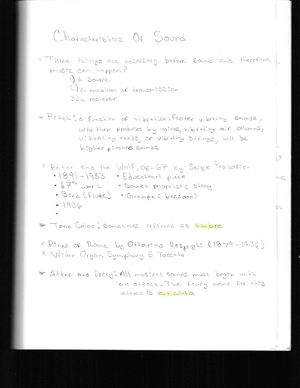 Characteristics Of Sound
Three things are necessary before sound and therefore
music can happen?
1) a source
2) a medium of transmission
3) a reciever
Pitch: is function of vibration. Faster vibrating sounds,
whether produced by voice, vibrating air columns,
vibrating reeds, or vibrating strings, will be
higher pitched sounds
Peter and the Wolf, op. 67 by Serge Prokofiev
• 1891-1953 • Educational piece
• 67th work • Soviet moralistic story
• Bird (flute) • Grandpa (bassoon)
• 1936
•
Tone Color: sometimes reffered as timbre
Pines of Rome by Ottorino Respighi (1879-1936)
Widor Organ Symphony 5 Toccata
Attac and Decay: All musical sounds must begin with
an attack. The fancy name for this
attack is